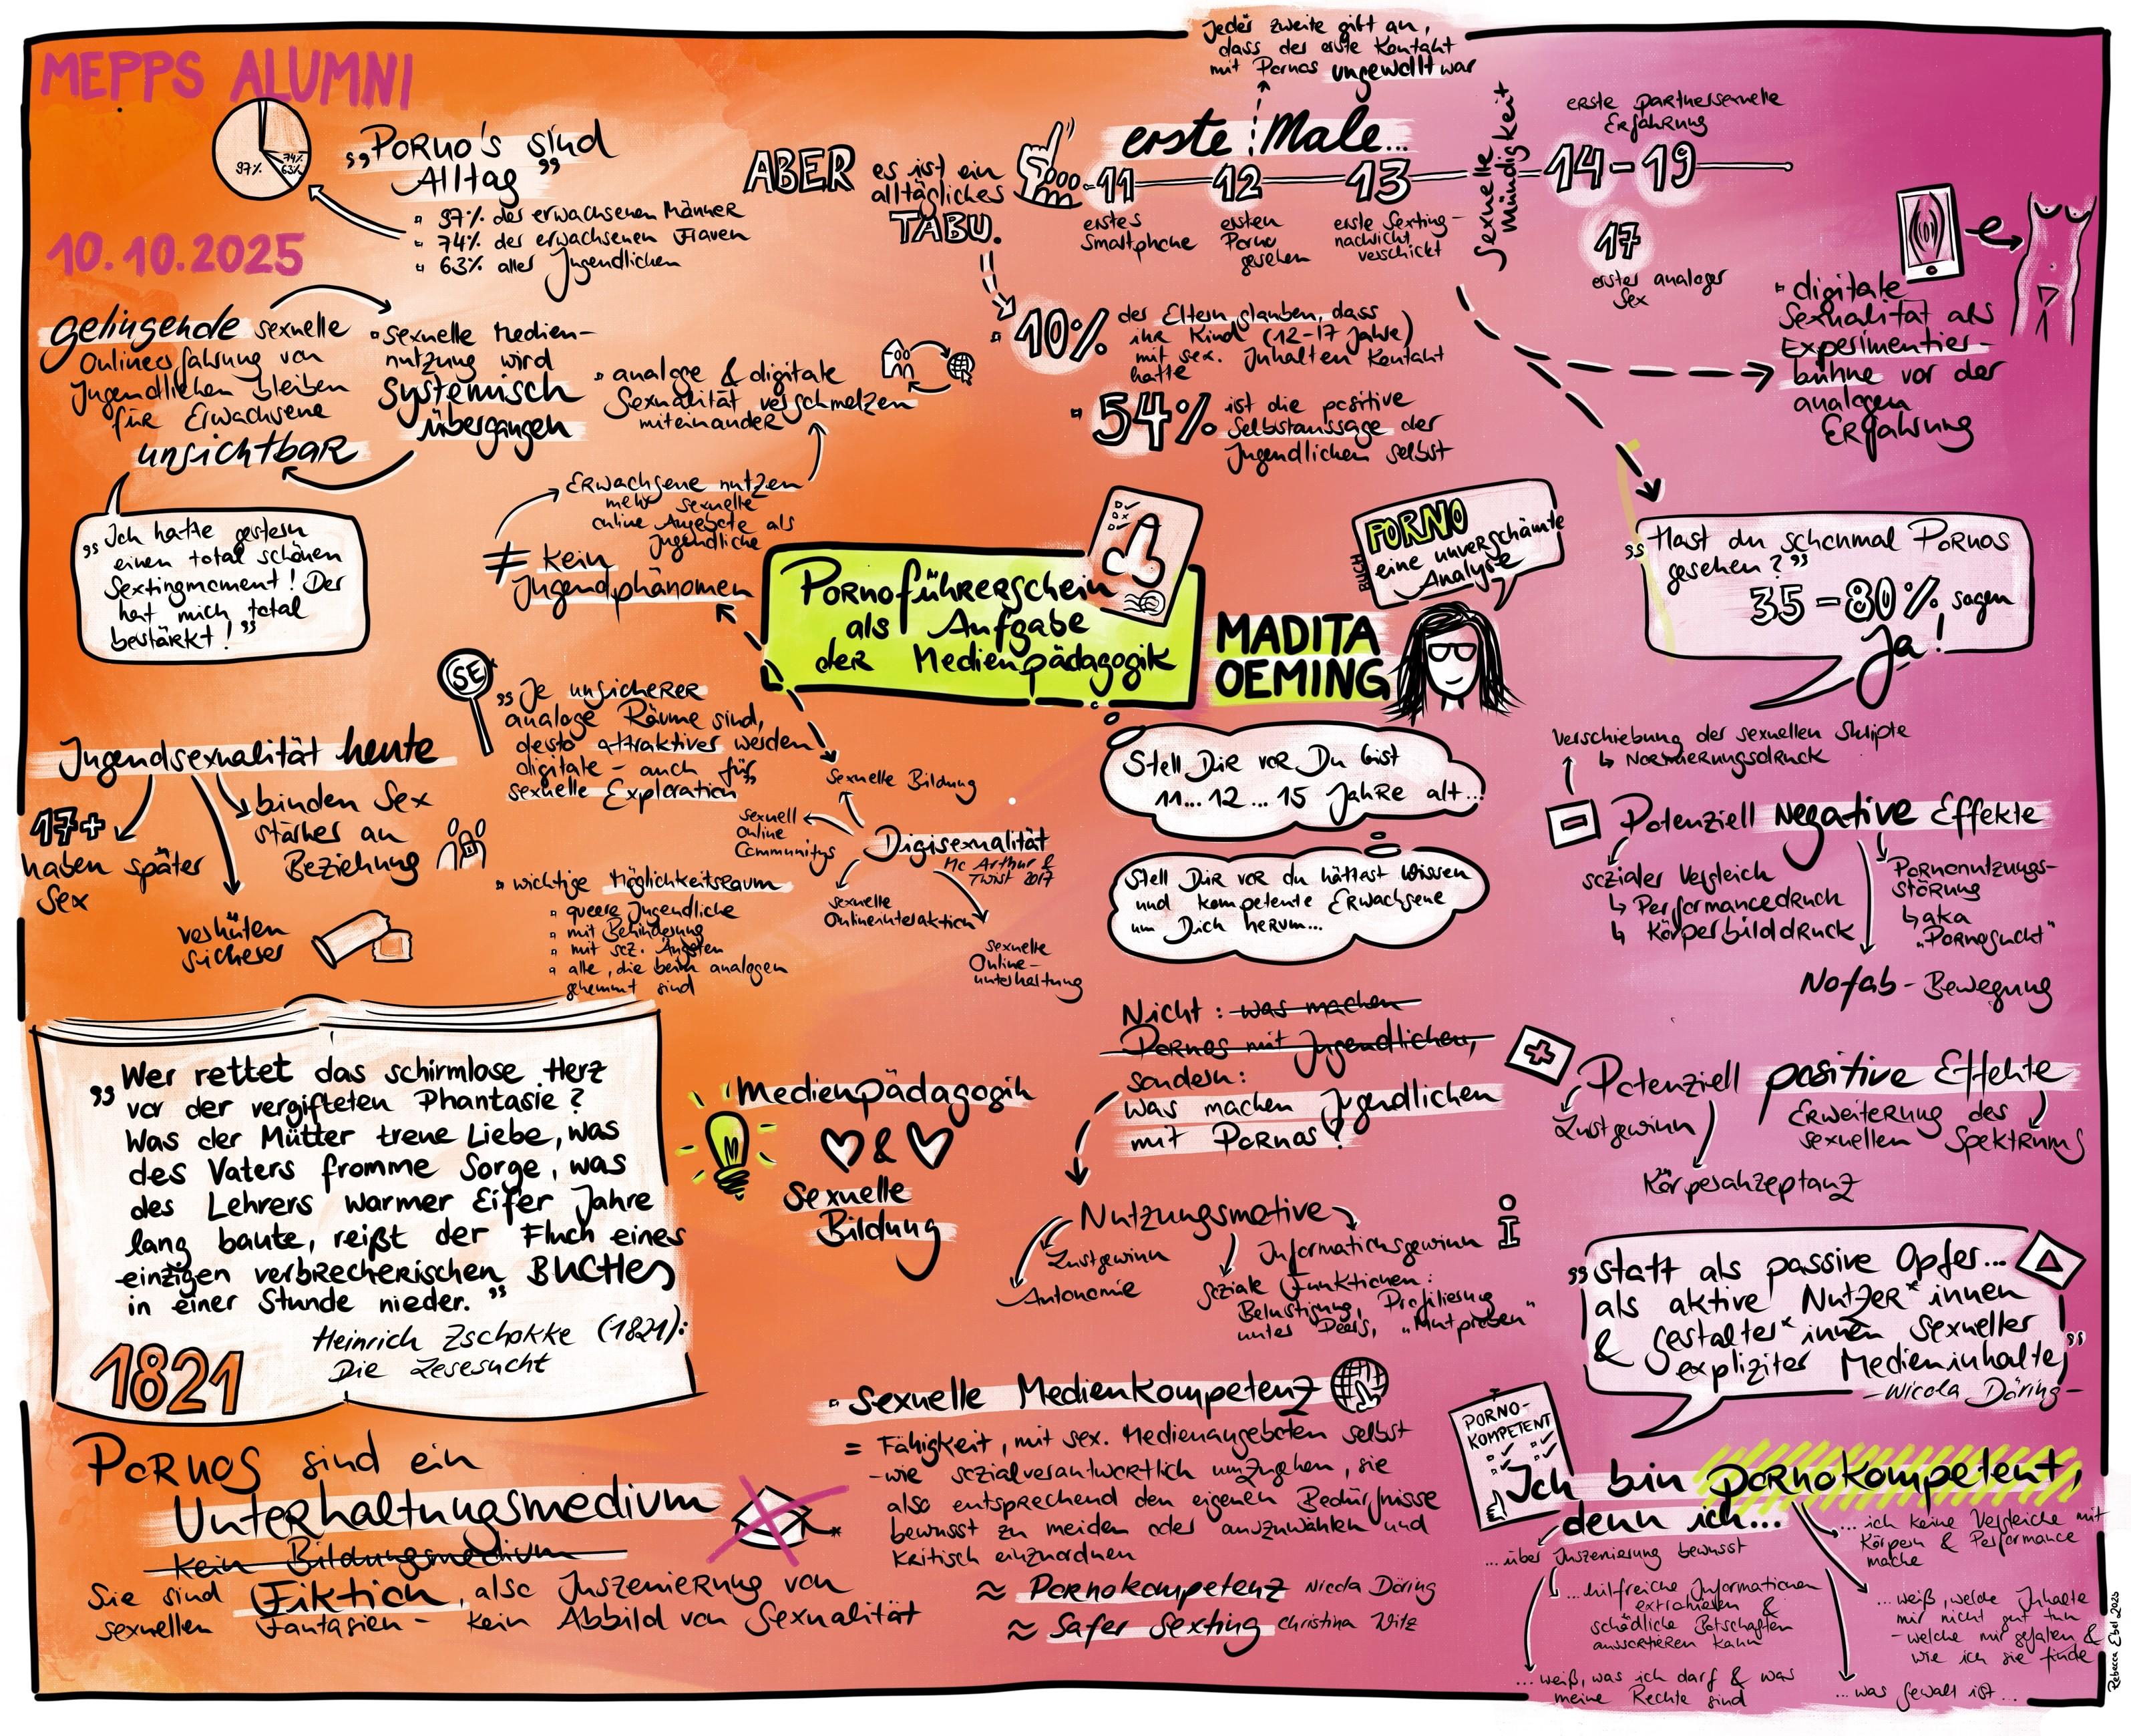 MEPPS ALUMNI
10.10.2025
97% 74% 63%
„Porno's sind
Alltag"
97% der erwachsenen Männer
74% der erwachsenen Frauen
63% aller Jugendlichen
ABER
es ist ein
alltägliches
TABU.
Jeder zweite gibt an,
dass der erste Kontakt
mit Pornos ungewollt war
erste Male...
11
erstes
Smartphone
12
ersten
Porno
gesehen
13
erste Sexting-
nachricht
verschickt
Sexuelle
Mündigkeit
erste partnersexuelle
Erfahrung
14-19
17
erster analoger
Sex
digitale
Sexualität als
Experimentier-
bühne vor der
analogen
Erfahrung
10% der Eltern glauben, dass
ihr Kind (12-17 Jahre)
mit sex. Inhalten Kontakt
hatte
54% ist die positive
Selbstaussage der
Jugendlichen selbst
gelingende sexuelle
Onlineerfahrung von
Jugendlichen bleiben
für Erwachsene
unsichtbar
sexuelle Medien-
nutzung wird
systemisch
übergangen
analoge & digitale
Sexualität verschmelzen
miteinander
Erwachsene nutzen
mehr sexuelle
online Angebote als
Jugendliche
≠ kein
Jugendphänomen
„Ich hatte gestern
einen total schönen
Sextingmoment! Der
hat mich total
bestärkt!"
Pornoführerschein
als Aufgabe
der Medienpädagogik
MADITA
OEMING
BUCH
PORNO
eine unverschämte
Analyse
„Hast du schonmal Pornos
gesehen?"
35-80% sagen
Ja!
SE
„Je unsicherer
analoge Räume sind,
desto attraktiver werden
digitale - auch für
sexuelle Exploration"
Jugendsexualität heute
17+
haben später
Sex
binden Sex
stärker an
Beziehung
verhüten
sicherer
wichtige Möglichkeitsraum
queere Jugendliche
mit Behinderung
mit soz. Ängsten
alle, die beim analogen
gehemmt sind
Sexuelle Bildung
sexuell
online
Communitys
Digisexualität
Mc Arthur &
Twist 2017
sexuelle
Onlineinteraktion
sexuelle
Online-
unterhaltung
Stell Dir vor Du bist
11... 12 ... 15 Jahre alt...
Stell Dir vor du hättest Wissen
und kompetente Erwachsene
um Dich herum...
Verschiebung der sexuellen Skripte
↳ Normierungsdruck
Potenziell Negative Effekte
sozialer Vergleich
↳ Performancedruck
↳ Körperbilddruck
Pornonutzungs-
störung
↳ aka
„Pornosucht"
Nofab-Bewegung
„Wer rettet das schirmlose Herz
vor der vergifteten Phantasie?
Was der Mütter treue Liebe, was
des Vaters fromme Sorge, was
des Lehrers warmer Eifer Jahre
lang baute, reißt der Fluch eines
einzigen verbrecherischen BUCHes
in einer Stunde nieder."
Heinrich Zschokke (1821):
Die Lesesucht
1821
Medienpädagogik
&
Sexuelle
Bildung
Nicht: was machen
Pornos mit Jugendlichen,
sondern:
was machen Jugendlichen
mit Pornos?
Nutzungsmotive
Lustgewinn
Autonomie
Informationsgewinn
i
soziale Funktionen:
Belustigung, Profilierung
unter Peers, „Mutproben"
Potenziell positive Effekte
Lustgewinn
Körperakzeptanz
Erweiterung des
sexuellen Spektrums
„statt als passive Opfer...
als aktive Nutzer*innen
& Gestalter*innen sexueller
expliziter Medieninhalte"
-Nicola Döring-
Pornos sind ein
Unterhaltungsmedium
kein Bildungsmedium
Sie sind Fiktion, also Inszenierung von
sexuellen Fantasien - kein Abbild von Sexualität
sexuelle Medienkompetenz
= Fähigkeit, mit sex. Medienangeboten selbst
-wie sozialverantwortlich umzugehen, sie
also entsprechend den eigenen Bedürfnisse
bewusst zu meiden oder auszuwählen und
kritisch einzuordnen
≈ Pornokompetenz Nicola Döring
≈ Safer Sexting Christina Witz
PORNO-
KOMPETENT
Ich bin pornokompetent,
denn ich...
...über Inszenierung bewusst
...hilfreiche Informationen
extrahieren &
schädliche Botschaften
aussortieren kann
...weiß, was ich darf & was
meine Rechte sind
...ich keine Vergleiche mit
Körpern & Performance
mache
...weiß, welche Inhalte
mir nicht gut tun
-welche mir gefallen &
wie ich sie finde
...was Gewalt ist...
Rebecca Ebel 2025